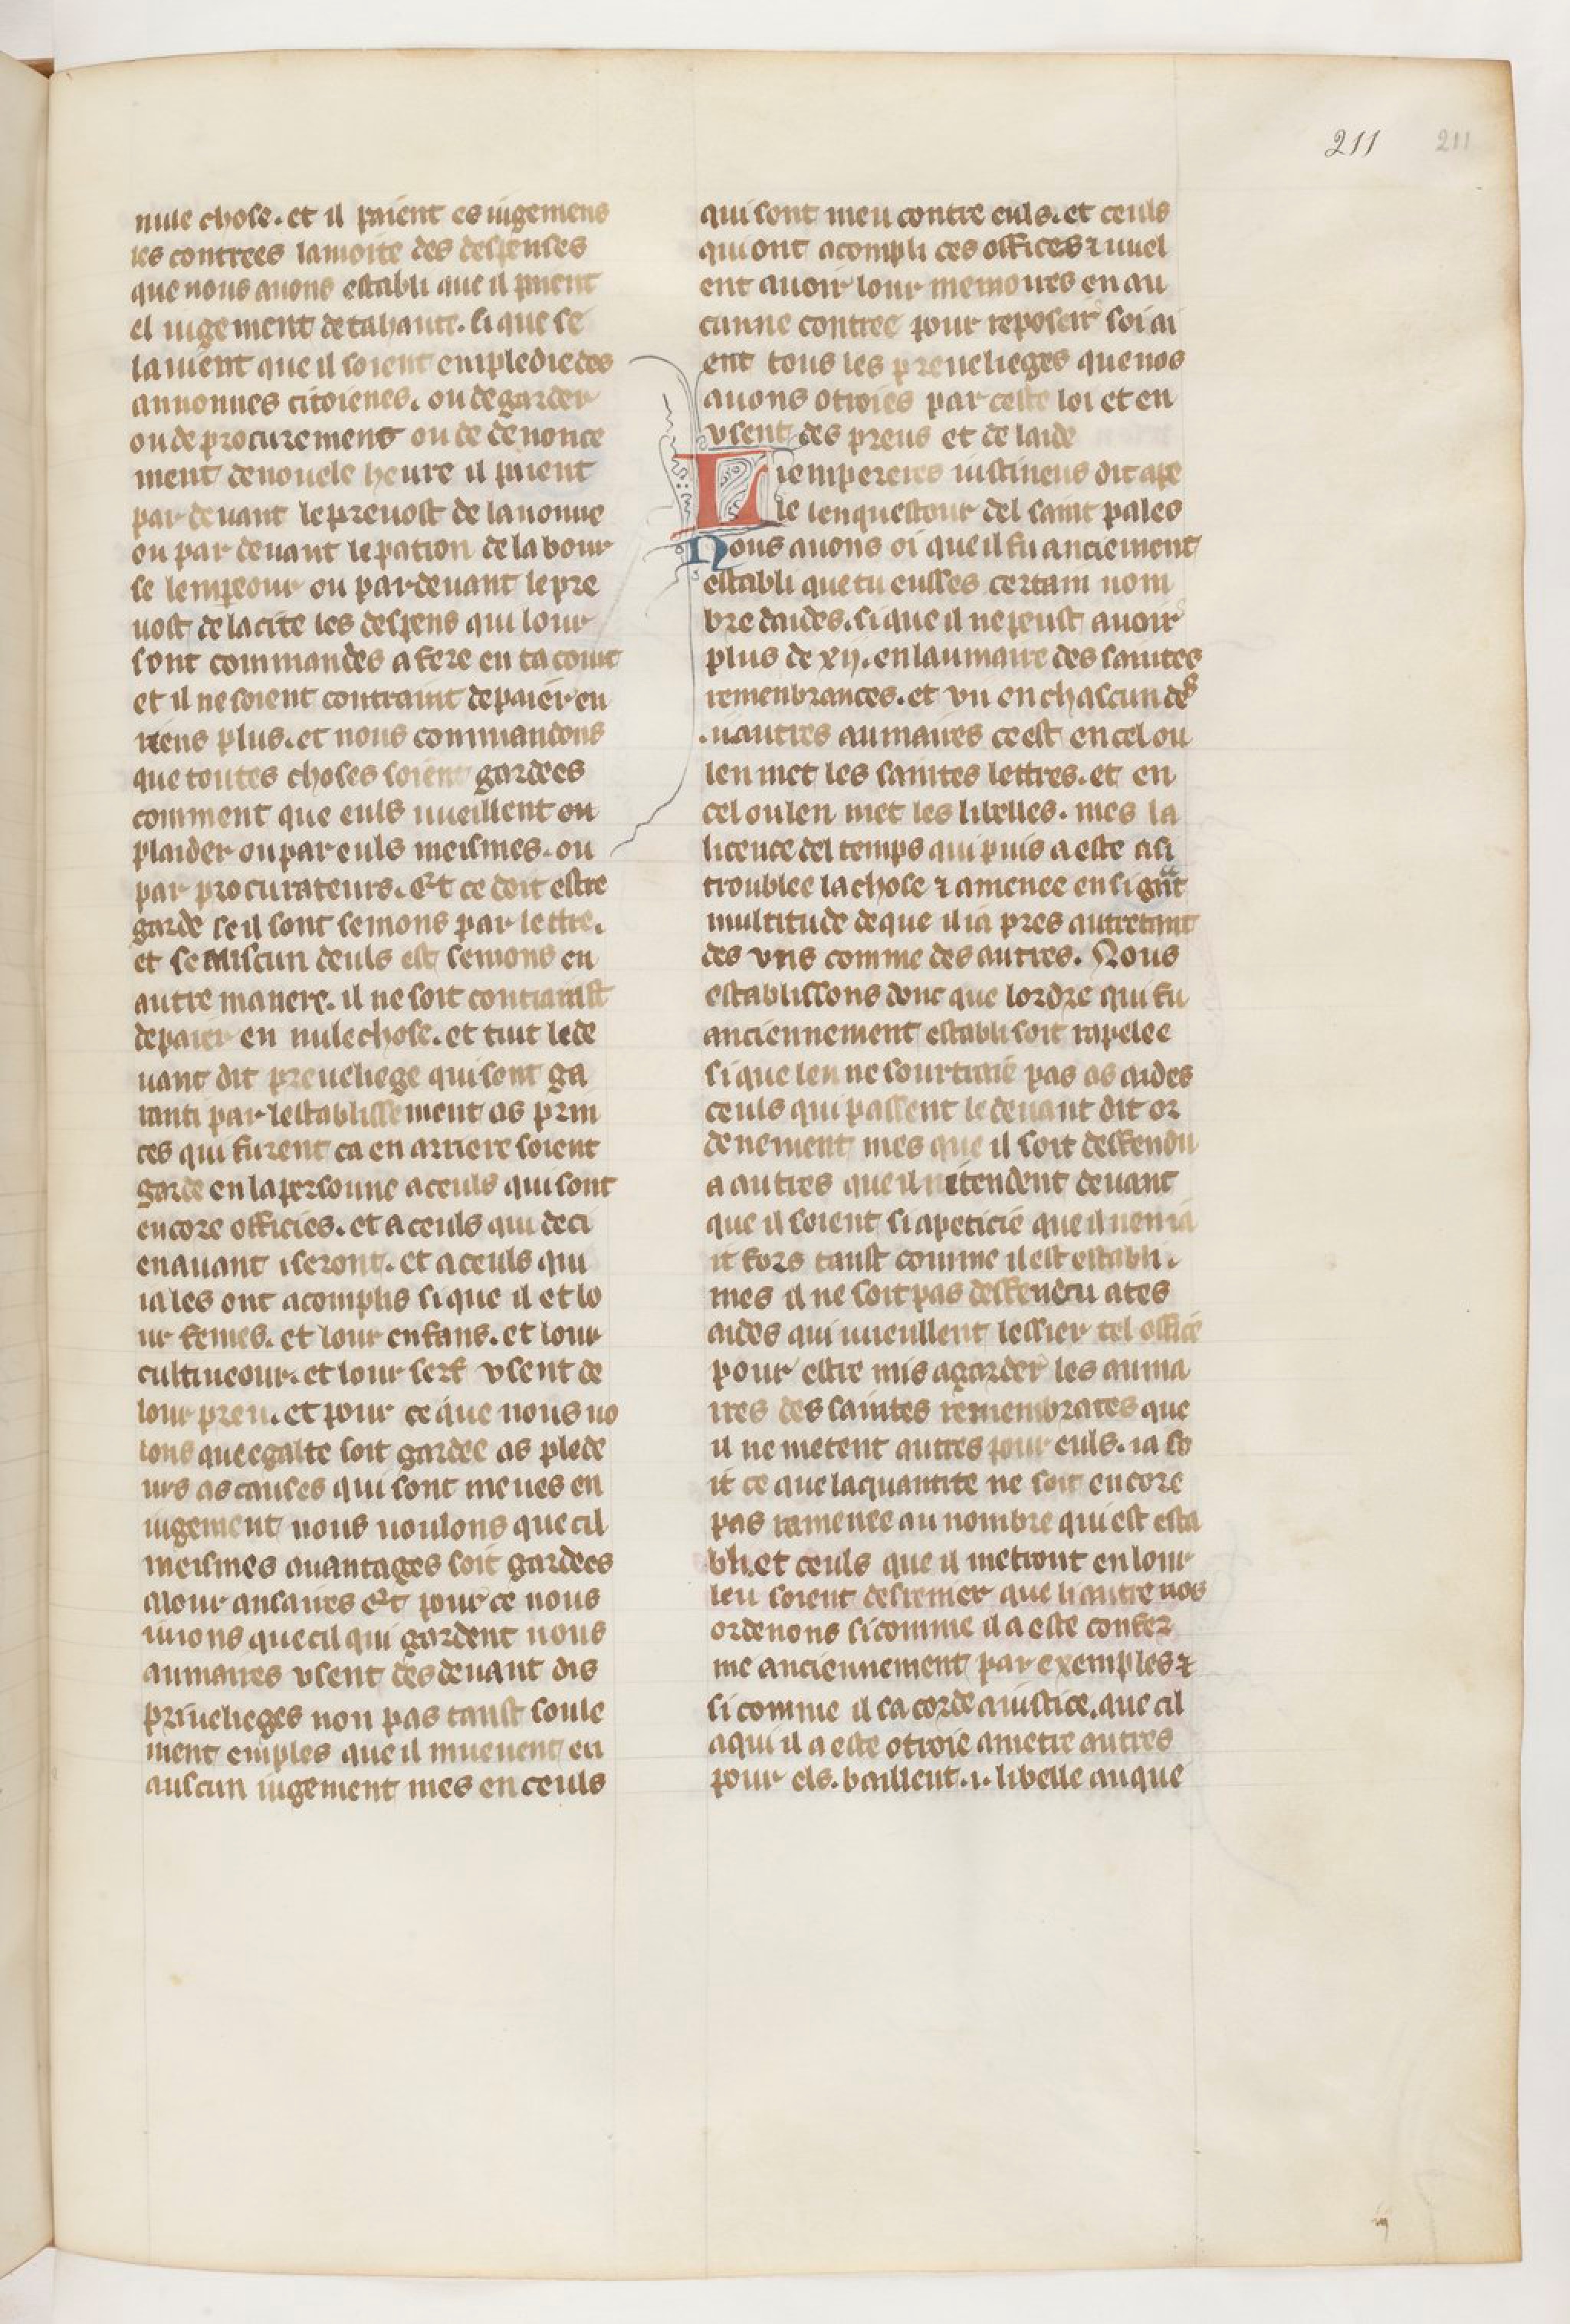 211 211
nule chose. et il paient es iugemens
les contrees lamoite des despenses
que nous auons establi que il paient
el iugement de tahaute. si que se
lauient que il soient empledie des
annonnes citoienes. ou de garder
ou de procurement ou de denonce
ment de nouele heure il paient
par deuant le preuost de lanonne
ou par deuant le patron de la bour
se lempeour ou par deuant le pre
uost de la cite les despens qui lour
sont commandes a fere en ta court
et il ne soient contraint de paier en
riens plus. et nous commandons
que toutes choses soient gardees
comment que euls uueillent ou
plaider ou par euls meismes. ou
par procurateurs. Et ce doit estre
garde se il sont semons par lettre.
et se aliscun deuls est semons en
autre manere. il ne soit contrainst
de paier en nule chose. et tuit le de
uant dit preueliege qui sont ga
ranti par lestablissement as prin
ces qui furent ca en arriere soient
garde en la personne a ceuls qui sont
encore officies. et a ceuls qui deci
enauant iseront. et a ceuls qui
ia les ont acomplis si que il et lo
ur femes. et lour enfans. et lour
cultiueour. et lour serf vsent de
lour preu. et pour ce que nous uo
lons que egalte soit gardee as plede
urs as causes qui sont meues en
iugement nous uoulons que cil
meismes auantages soit gardees
a lour ansaires Et pour ce nous
uuions que cil qui gardent nous
aumaires vsent des deuant dis
priuelieges non pas tanst soule
ment emples que il mueuent en
auscun iugement mes en ceuls
qui sont meu contre euls. et ceuls
qui ont acompli ces offices ⁊ uuel
ent auoir lour memoires en au
cunne contree pour reposeir soi ai
ent tous les preuelieges que nos
auons otroies par ceste loi et en
vsent des preus et de laide
Li empereres iustinens dit a pe
le lenquestour del saint pales
Nous auons oi que il fu anciement
establi que tu eusses certain nom
bre daides. si que il ne peust auoir
plus de xij. en laumaire des saintes
remenbrances. et vii en chascun des
.ii. autres aumaires ce est en cel ou
len met les saintes lettres. et en
cel ou len met les libelles. mes la
licence del temps qui puis a este a si
troublee la chose ⁊ amenee en si gnt
multitude de que il ia pres autretant
des vns comme des autres. Nous
establissons donc que lordre qui fu
anciennement establi soit rapelee
si que len ne sourtraie pas as aides
ceuls qui passent le deuant dit or
denement mes que il soit deffendu
a autres que il ni tendent deuant
que il soient si apeticie que il nen ia
it fors tanst comme il est establi.
mes il ne soit pas deffendu a tes
aides qui uueullent lessier tel office
pour estre mis a garder les auma
ires des saintes remembrances que
il ne metent autres pour euls. ia so
it ce que la quantite ne soit encore
pas ramenee au nombre qui est esta
bli. et ceuls que il metront en lour
leu soient desrenier que li autre nos
ordenons si comme il a este confer
me anciennement par exemples ⁊
si comme il sa corde a iustice. que cil
a qui il a este otroie a metre autres
pour els. baillent .i. libelle au que